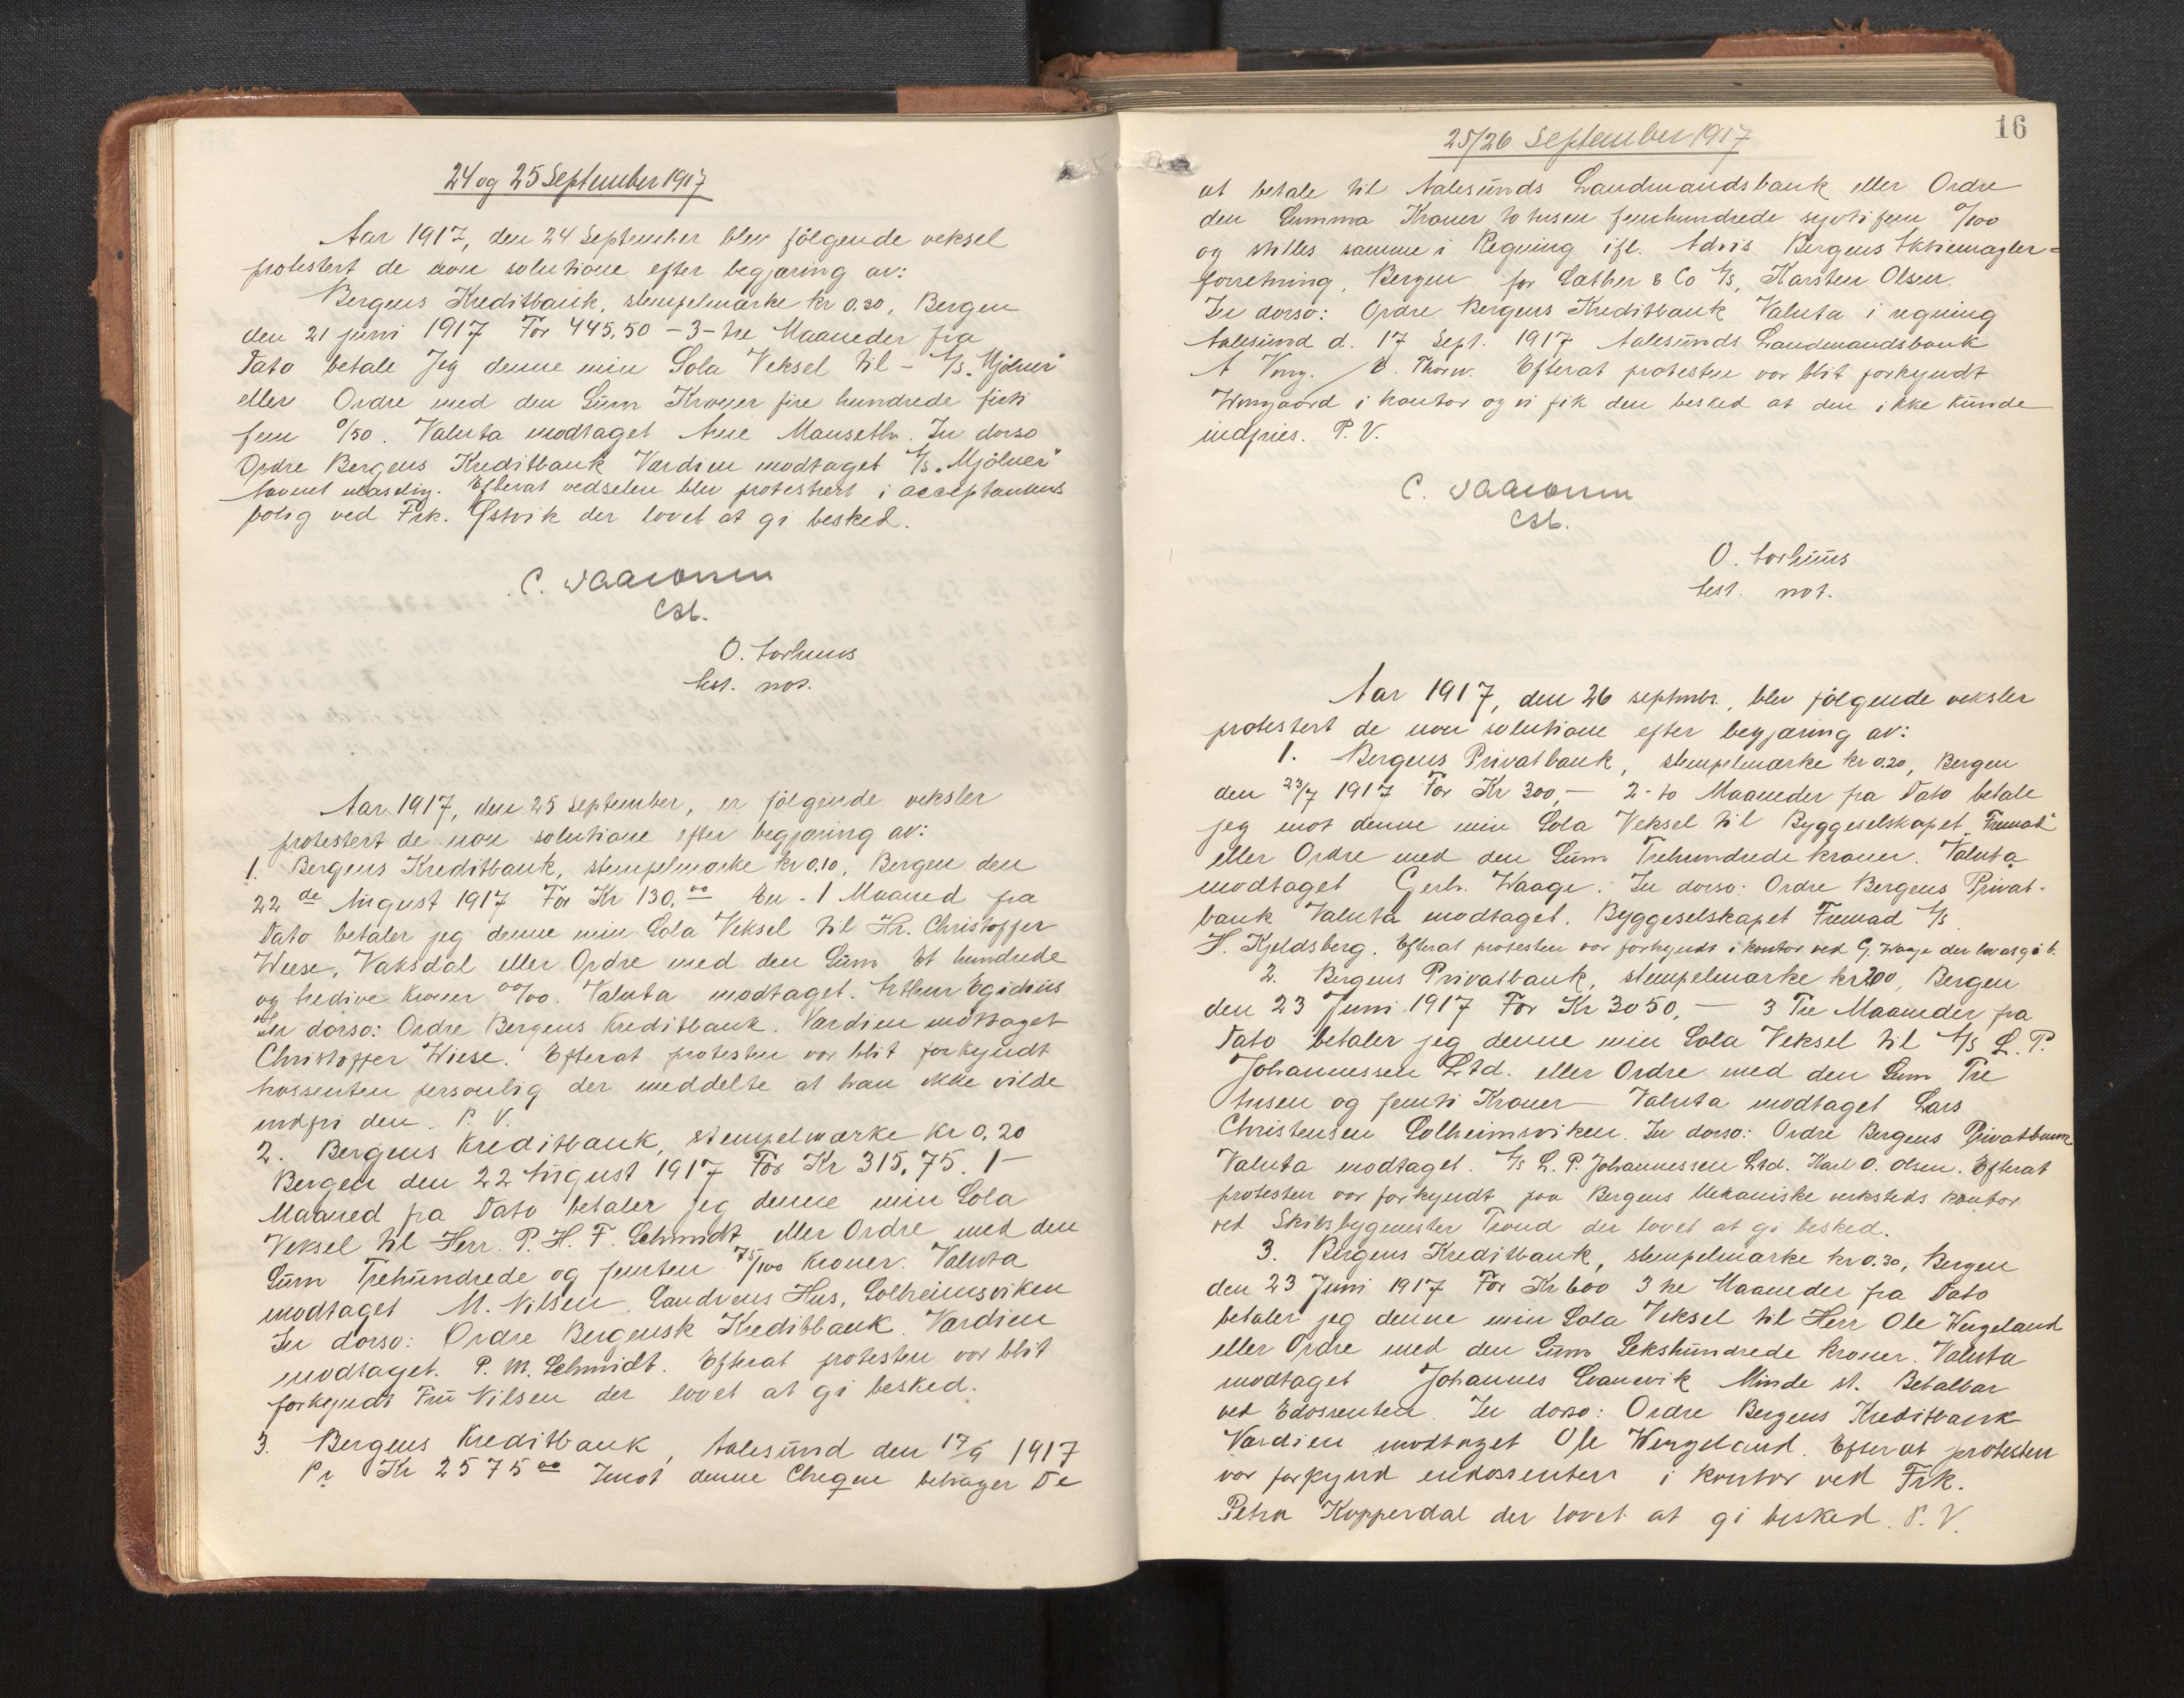 24 og 25 September 1917
Aar 1917, den 24 September blev følgende veksel
protestert de non solutione efter begjæring av:
Bergens Kreditbank, stempelmærke kr 0.30, Bergen
den 21 juni 1917 For 445,50 - 3 - tre Maaneder fra
Dato betale Jeg denne min Sola Veksel til - A/S. "Mjölner"
eller Ordre med den Sum Kroner fire hundrede firti
fem 0/50. Valuta modtaget Arne Manseth. In dorso
Ordre Bergens Kreditbank Værdien modtaget A/S. "Mjölner"
Efterat vedselen blev protestert i acceptantens
bolig ved Frk. Østvik der lovet at gi besked.
C.
Cst.
O. Aarhuus
best. not.
Aar 1917, den 25 September, er følgende veksler
protestert de non solutione efter begjæring av:
1. Bergens Kreditbank, stempelmærke kr 0.10, Bergen den
22 de August 1917 For Kr 130.00 En - 1 Maaned fra
Dato betaler jeg denne min Sola Veksel til Hr. Christoffer
Wiese, Vaksdal eller Ordre med den Sum Et hundrede
og tredive kroner 00/00. Valuta modtaget. Arthur Egidius
In dorso: Ordre Bergens Kreditbank. Værdien modtaget
Christoffer Wiese. Efterat protesten var blit forkyndt
trossenten personlig der meddelte at han ikke vilde
indfri den. P. V.
2. Bergens Kreditbank, stempelmærke kr 0,20
Bergen den 22 August 1917 For Kr 315,75. 1 -
Maaned fra Dato betaler jeg denne min Sola
Veksel til Herr. P. H. F. Schmidt eller Ordre med den
Sum Trehundrede og femten 75/100 kroner. Valuta
modtaget M. Nilsen, Sandvens Hus, Solheimsviken
In dorso: Ordre Bergensk Kreditbank. Værdien
modtaget. P. M. Schmidt. Efterat protesten var blit
forkyndt Fru Nilsen der lovet at gi besked.
3. Bergens Kreditbank, Aalesund den 17/9 1917
Pr Kr 2575 00 Imot denne Cheque behager De
16
25/26 September 1917
at betale til Aalesunds Landmandsbank eller Ordre
den Summa Kroner to tusen femhundrede sytti fem 0/100
og stilles samme i Regning ifl. Advis Bergens Aktiemægler=
forretning, Bergen for Sather & Co A/S, Karsten Olsen.
In dorso: Ordre Bergens Kreditbank Valuta i regning
Aalesund d. 17 Sept. 1917 Aalesunds Landmandsbank
A Efterat protesten var blit forkyndt
i kontor og vi fik den besked at den ikke kunde
indfries. P. V.
C.
Cst.
O. Aarhuus
best. not.
Aar 1917, den 26 septmbr., blev følgende veksler
protestert de non solutione efter begjæring av:
1. Bergens Privatbank, stempelmærke kr 0.20, Bergen
den 23/7 1917 For Kr 300,- 2 - to Maaneder fra Dato betale
jeg mot denne min Sola Veksel til Byggeselskapet "Fremad"
eller Ordre med den Sum Trehundrede kroner. Valuta
modtaget Gerh. Waage. In dorso: Ordre Bergens Privat-
bank Valuta modtaget. Byggeselskapet Fremad A/S
H. Kjeldsberg. Efterat protesten var forkyndt i kontor ved G. Waage der lovet gi b.
2. Bergens Privatbank, stempelmærke kr 2.00, Bergen
den 23 Juni 1917 For Kr 3050,- 3 Tre Maaneder fra
Dato betaler jeg denne min Sola Veksel til A/S L. P.
Johannessen Ltd. eller Ordre med den Sum Tre
tusen og femti Kroner - Valuta modtaget Lars
Christensen Solheimsviken. In dorso: Ordre Bergens Privatbank
Valuta modtaget. A/S L. P. Johannessen Ltd. Karl O. Olsen. Efterat
protesten var forkyndt paa Bergens Mekaniske verksteds kontor
ved Skibsbygmester Trond der lovet at gi besked.
3. Bergens Kreditbank, stempelmærke kr 0.30, Bergen
den 23 Juni 1917 For Kr 600 3 tre Maaneder fra Dato
betaler jeg denne min Sola Veksel til Herr Ole Wergeland
eller Ordre med den Sum Sekshundrede kroner. Valuta
modtaget Johannes Svanevik Minde st. Betalbar
ved Edossenten. In dorso: Ordre Bergens Kreditbank
Værdien modtaget Ole Wergeland. Efterat protesten
var forkynd endossenten i kontor ved Frk.
Petra Kopperdal der lovet at gi besked. P. V.